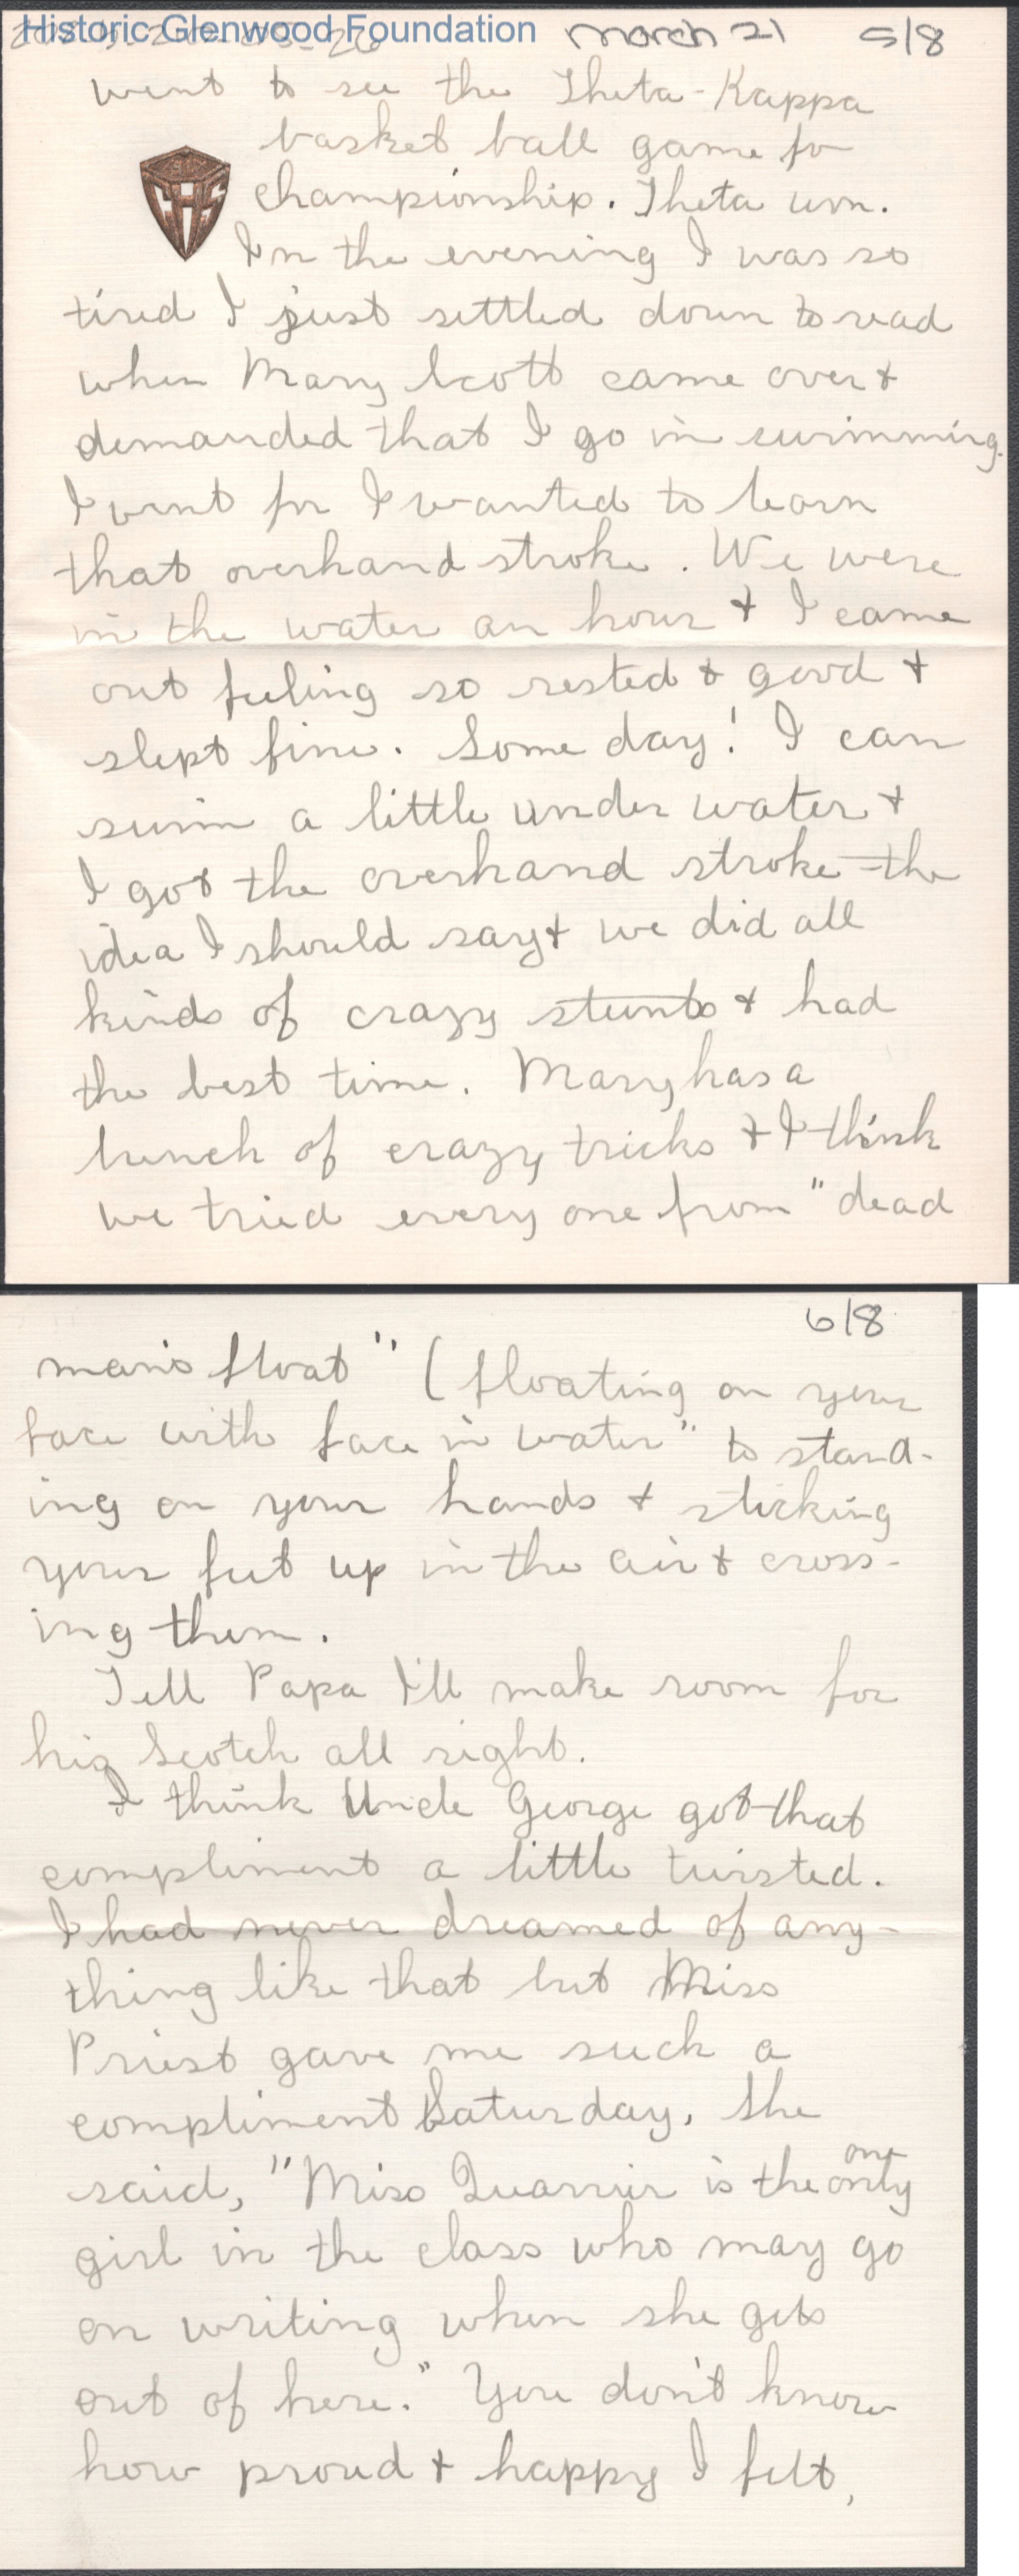 Historic Glenwood Foundation
March 21 5/8
went to see the Theta-Kappa
basket ball game for
championship. Theta won.
1917
CHS
In the evening I was so
tired I just settled down to read
when Mary Scott came over +
demanded that I go in swimming.
I went for I wanted to learn
that overhand stroke. We were
in the water an hour + I came
out feeling so rested + good +
slept fine. Some day! I can
swim a little under water +
I got the overhand stroke - the
idea I should say + we did all
kinds of crazy stunts + had
the best time. Mary has a
bunch of crazy tricks + I think
we tried every one from "dead
6/8
man's float" (floating on your
face with face in water" to stand-
ing on your hands + sticking
your feet up in the air + cross-
ing them.
Tell Papa I'll make room for
his Scotch all right.
I think Uncle George got that
compliment a little twisted.
I had never dreamed of any-
thing like that but Miss
Priest gave me such a
compliment Saturday. She
said, "Miss Quarrier is the only one
girl in the class who may go
on writing when she gets
out of here." You don't know
how proud + happy I felt,